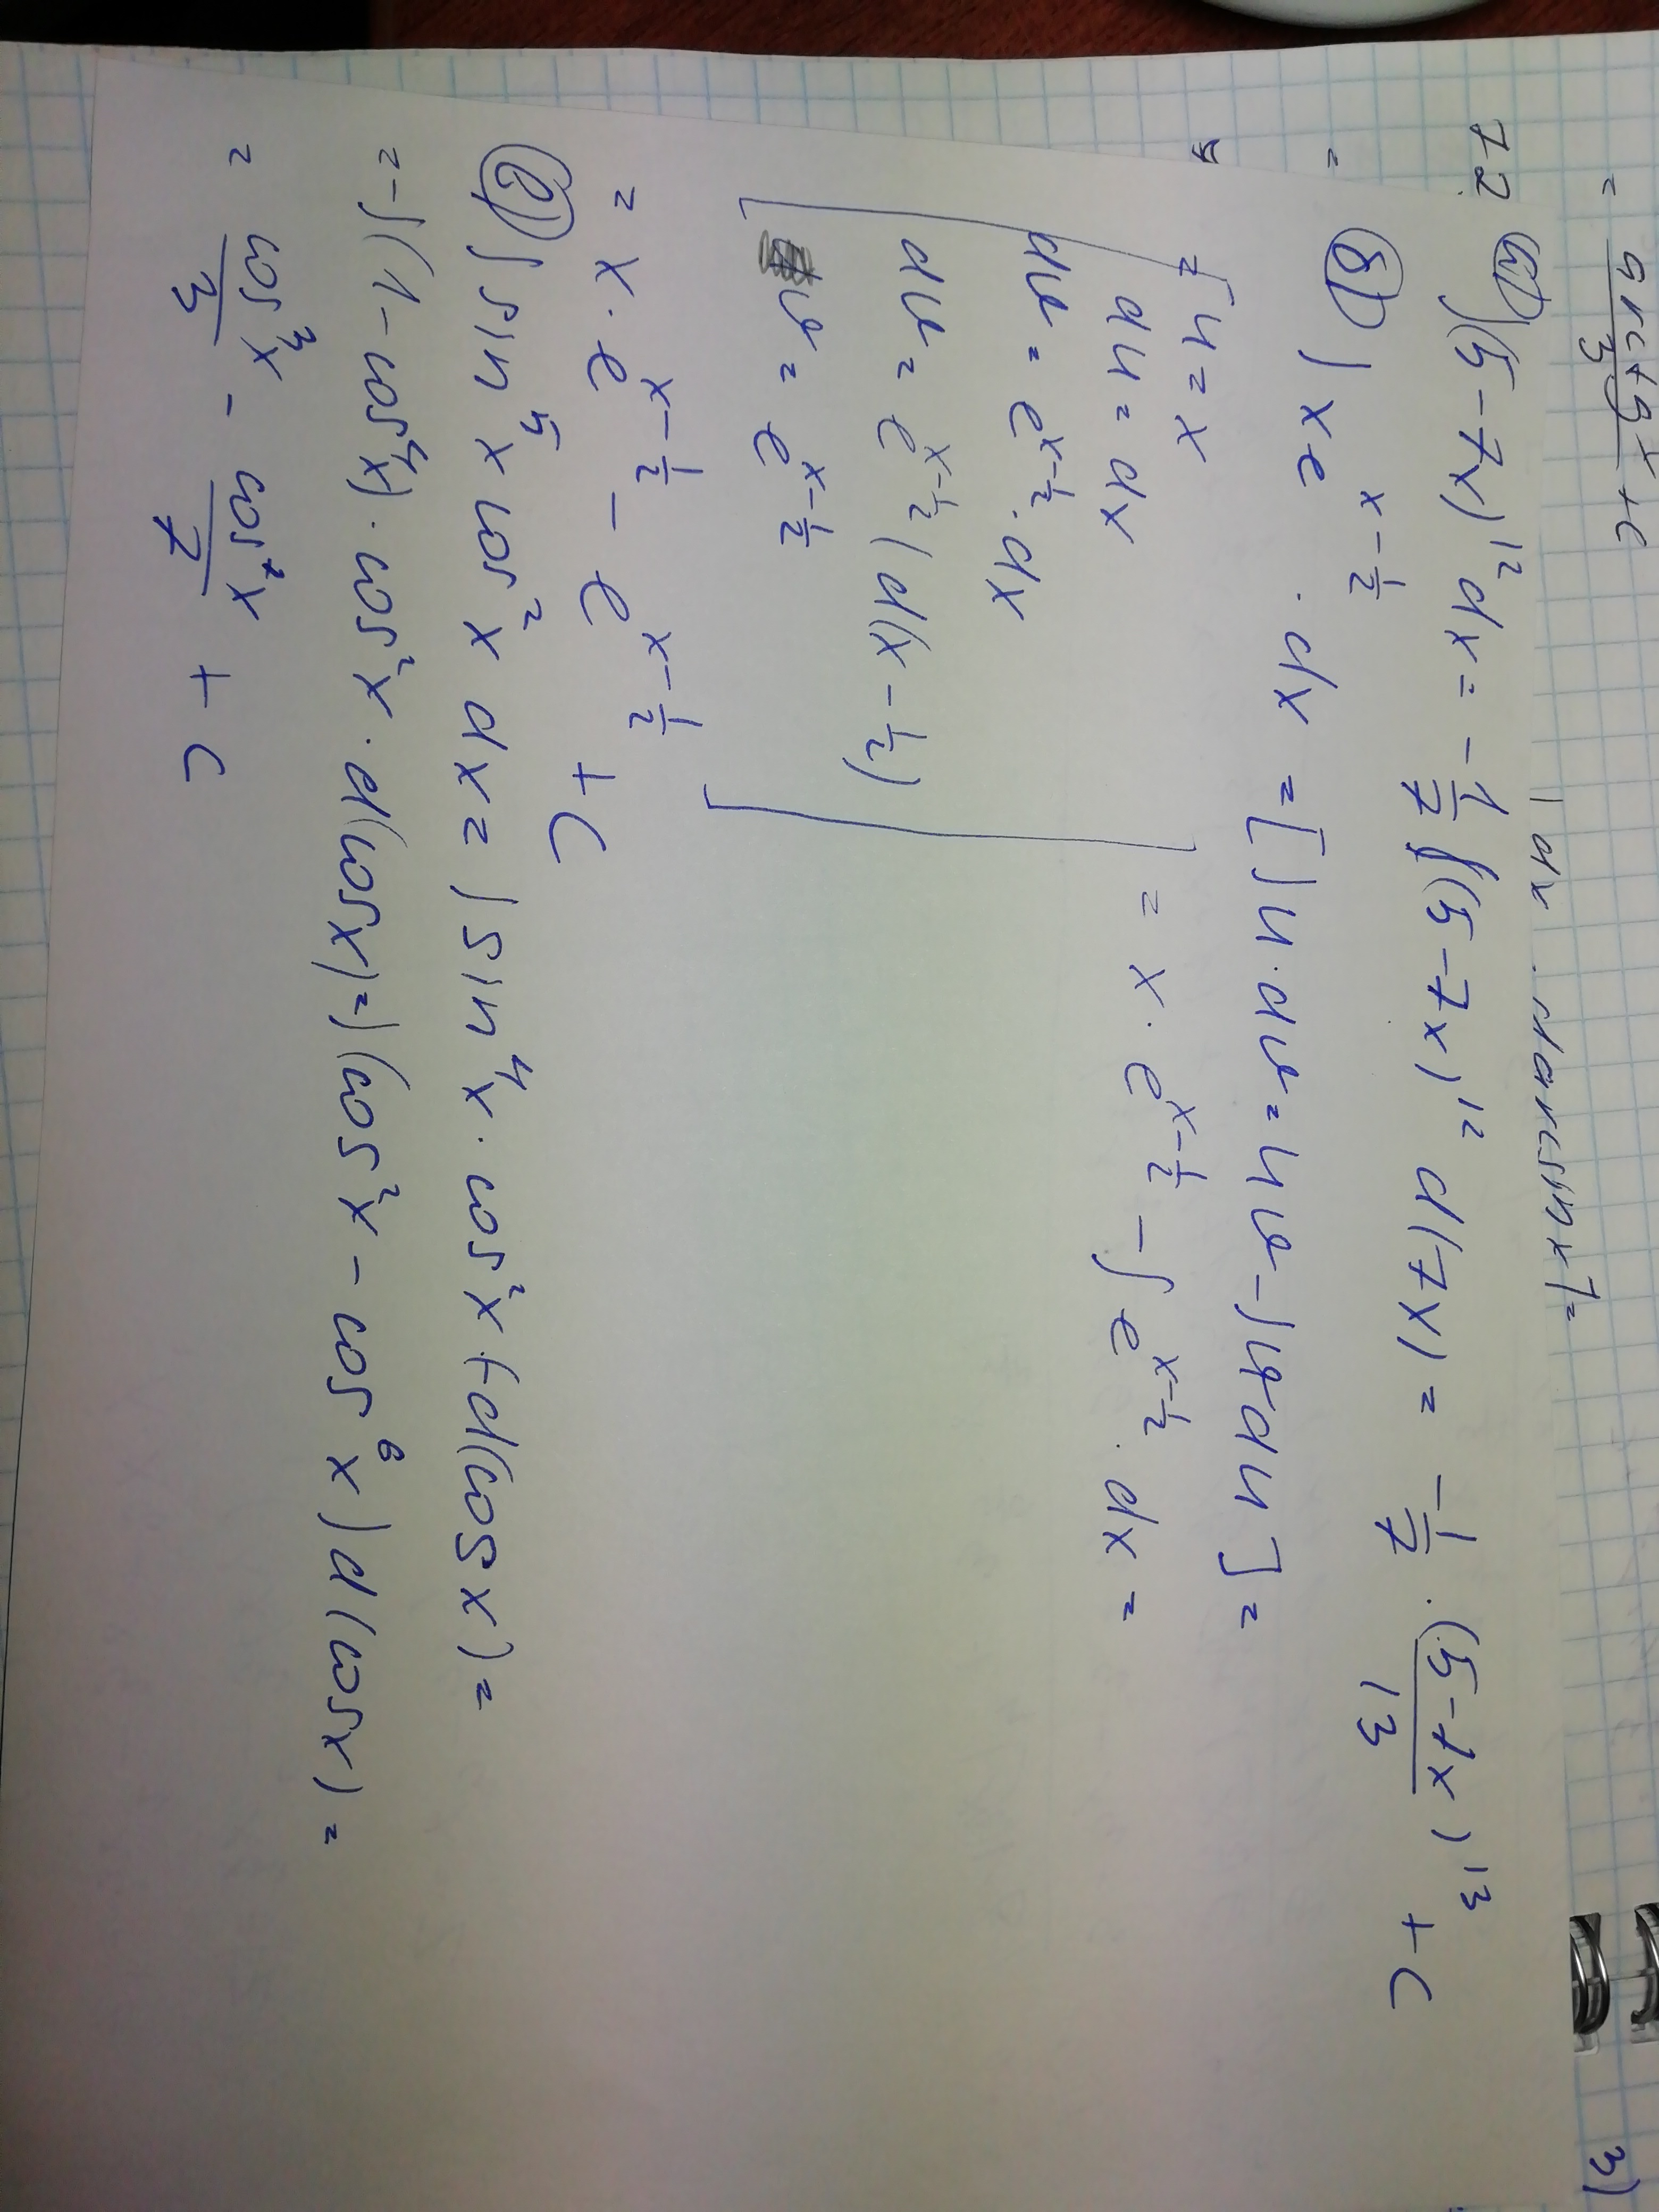 = arctg³x/3 + C
dx . d arcsin x] =
72.
а) ∫(5-7x)¹² dx = -1/7 ∫(5-7x)¹² d(7x) = -1/7 · (5-7x)¹³/13 + C
=
б) ∫ x e^(x-1/2) · dx = [∫ u · dv = uv - ∫ v du] =
= [u = x
du = dx
dv = e^(x-1/2) · dx
dv = e^(x-1/2) d(x - 1/2)
v = e^(x-1/2)] = x · e^(x-1/2) - ∫ e^(x-1/2) · dx =
= x · e^(x-1/2) - e^(x-1/2) + C
∫ sin⁵ x cos² x dx = ∫ sin⁴ x · cos² x + d(cos x) =
= -∫(1 - cos⁴x) · cos² x · d(cos x) = ∫(cos² x - cos⁶ x) d(cos x) =
= cos³x/3 - cos⁷x/7 + C
3)